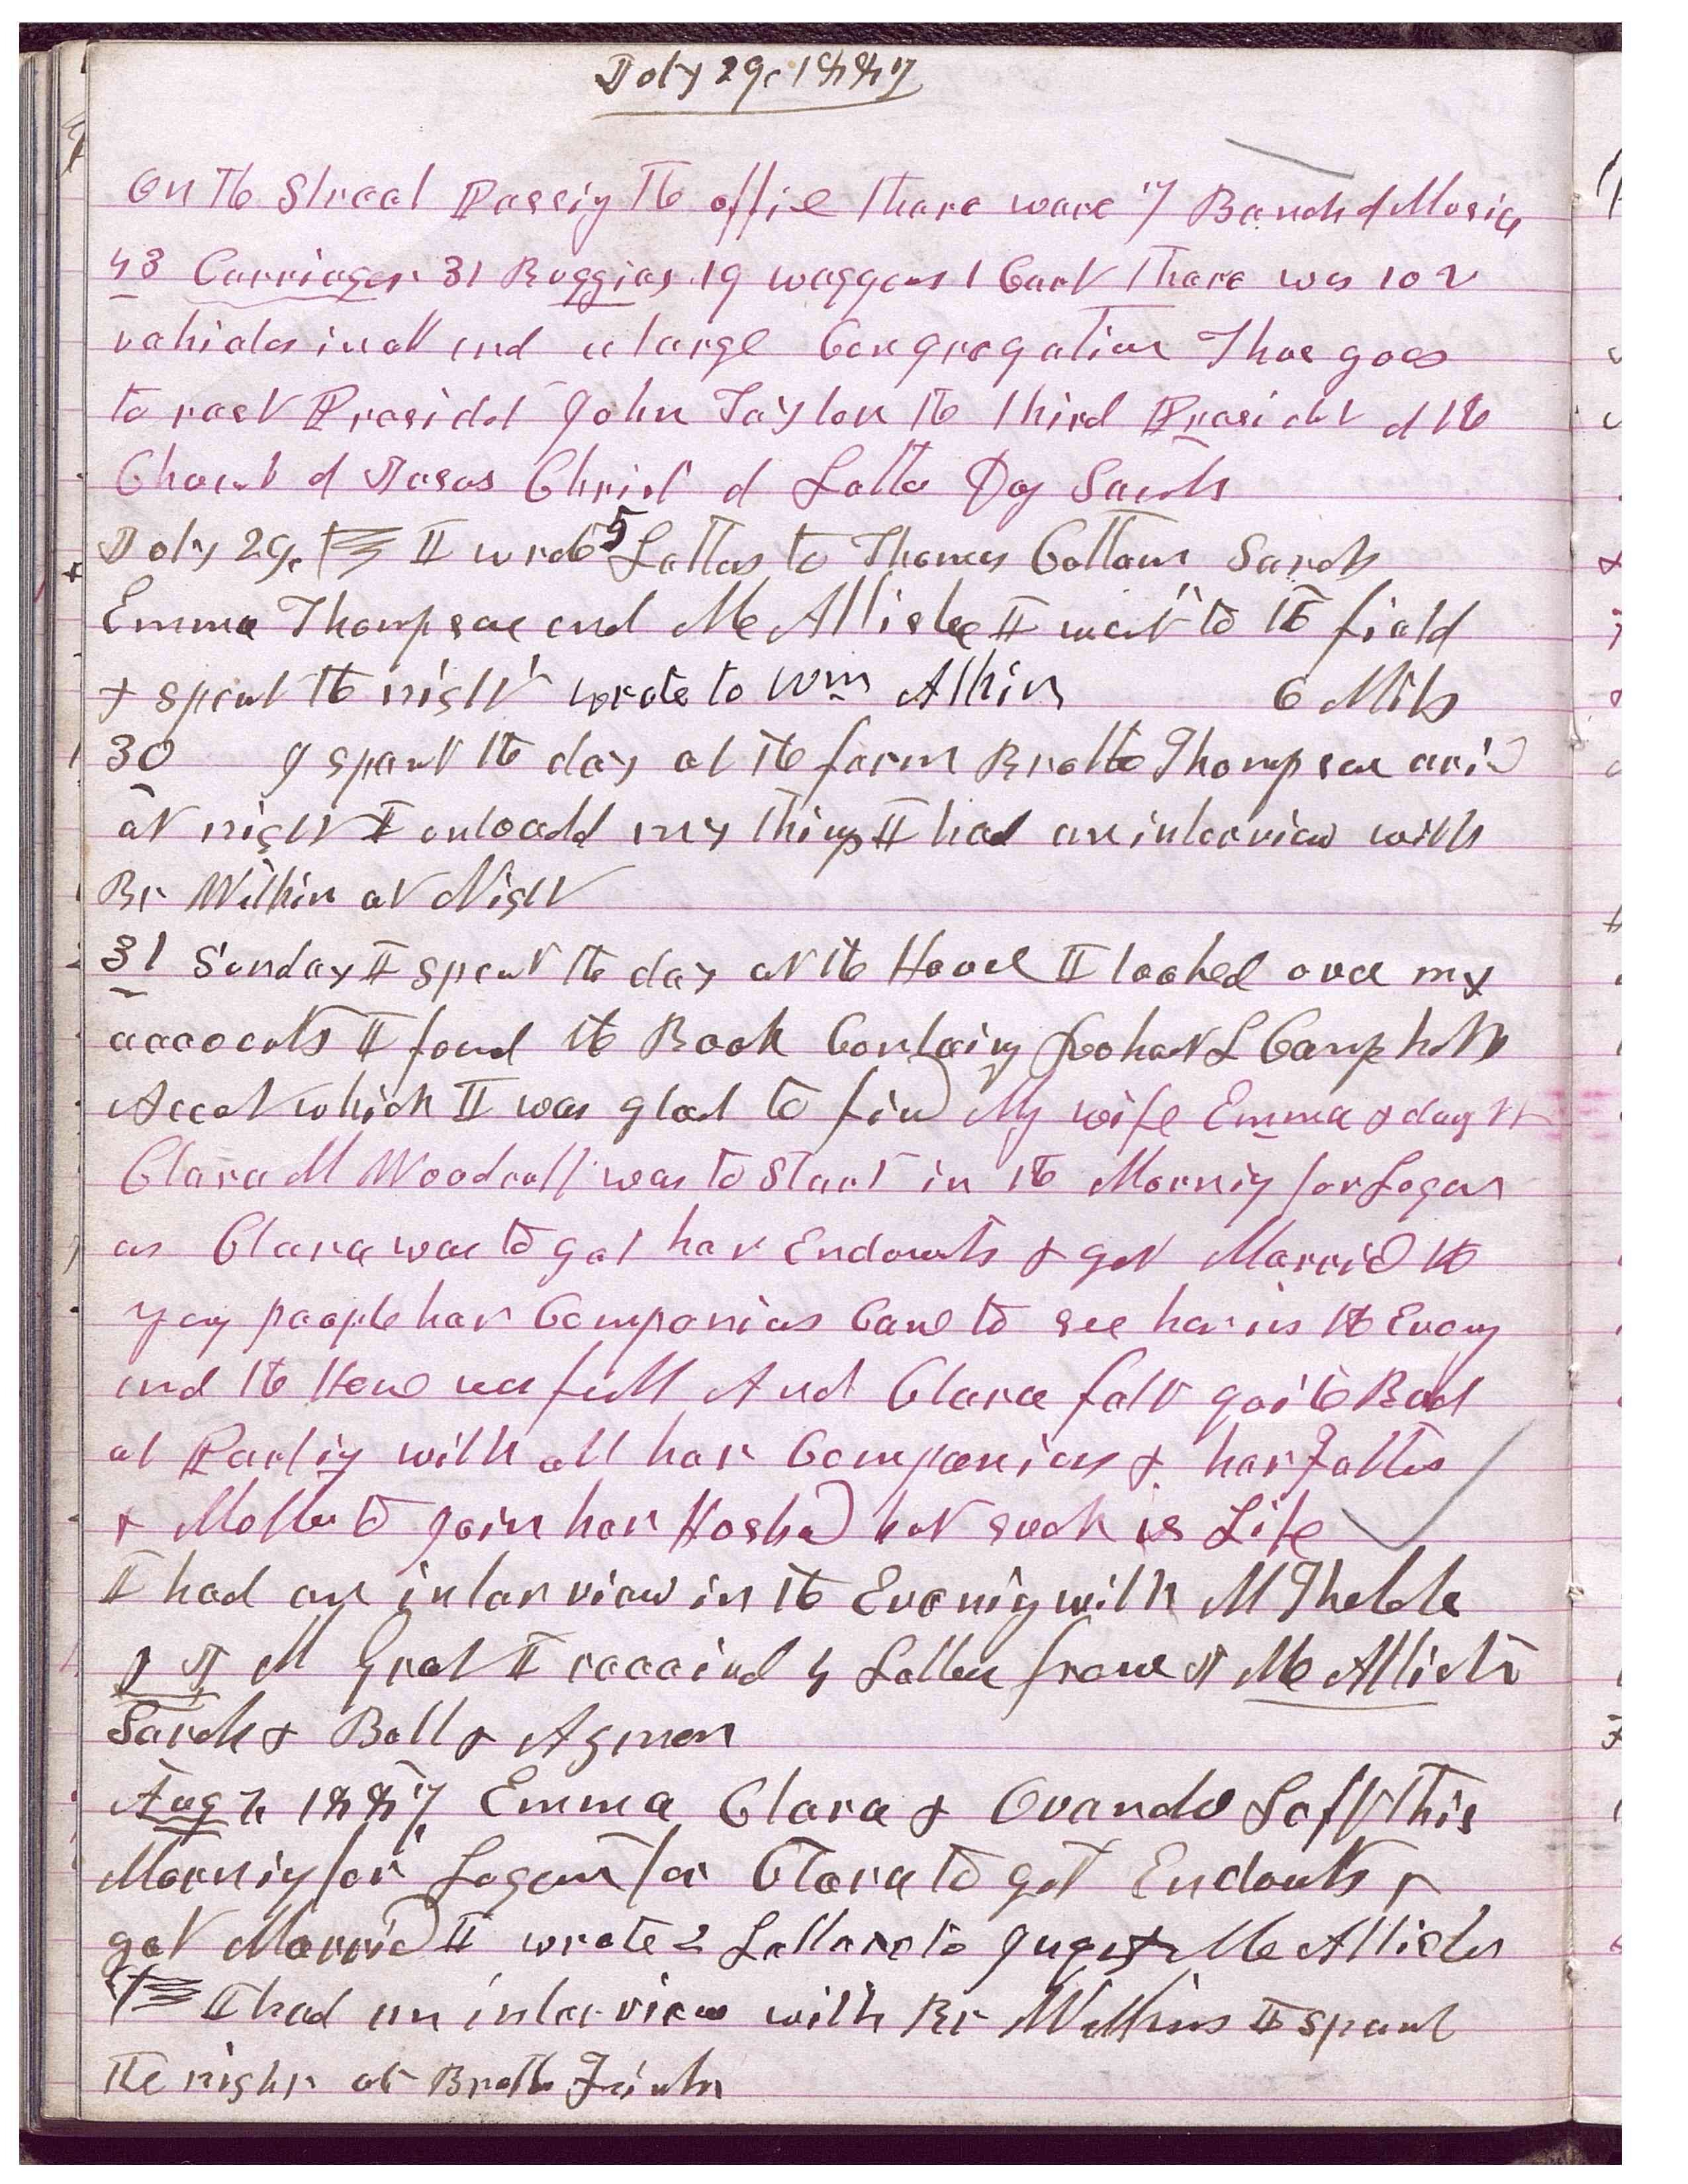 July 29, 1887
On the Street Passing the office there ware 7 Bands of Music
43 Carriages 31 Buggies 19 waggons 1 Cart There was 102
vehicles in all and a large Congregation Thus goes
to rest President John Taylor the third President of the
Church of Jesus Christ of Latter Day Saints
July 29, I wrote 5 Letters to Thomas Cottam Sarah
Emma Thompson and McAllister I went to the field
& spent the night wrote to Wm Atkin 6 Miles
30 I spent the day at the farm Brother Thompson arived
at night I unloaded my things I had an interview with
Br Wilkin at Night
31 Sunday I spent the day at the House I looked over my
accounts I found the Book Containing Robert L Campbells
Accot which I was glad to find My wife Emma & daught
Clara M Woodruff was to Start in the Morning for Logan
as Clara was to get her Endowments & get Married the
young people her Companions Came to see her in the Evening
and the House was full And Clara felt quite Bad
at Parting with all her Companions & her Father
& Mother to join her Husband but such is Life
I had an interview in the Evening with M Thatcher
& J M Grant I received 4 Letters from J McAllister
Sarah & Bell & Azmon
Aug 1, 1887 Emma Clara & Ovando Left this
Morning for Logan for Clara to get Endowments &
get Married I wrote 2 Letters to Jaques & McAllister
I had an interview with Br Wilkins I spent
the night at Brother